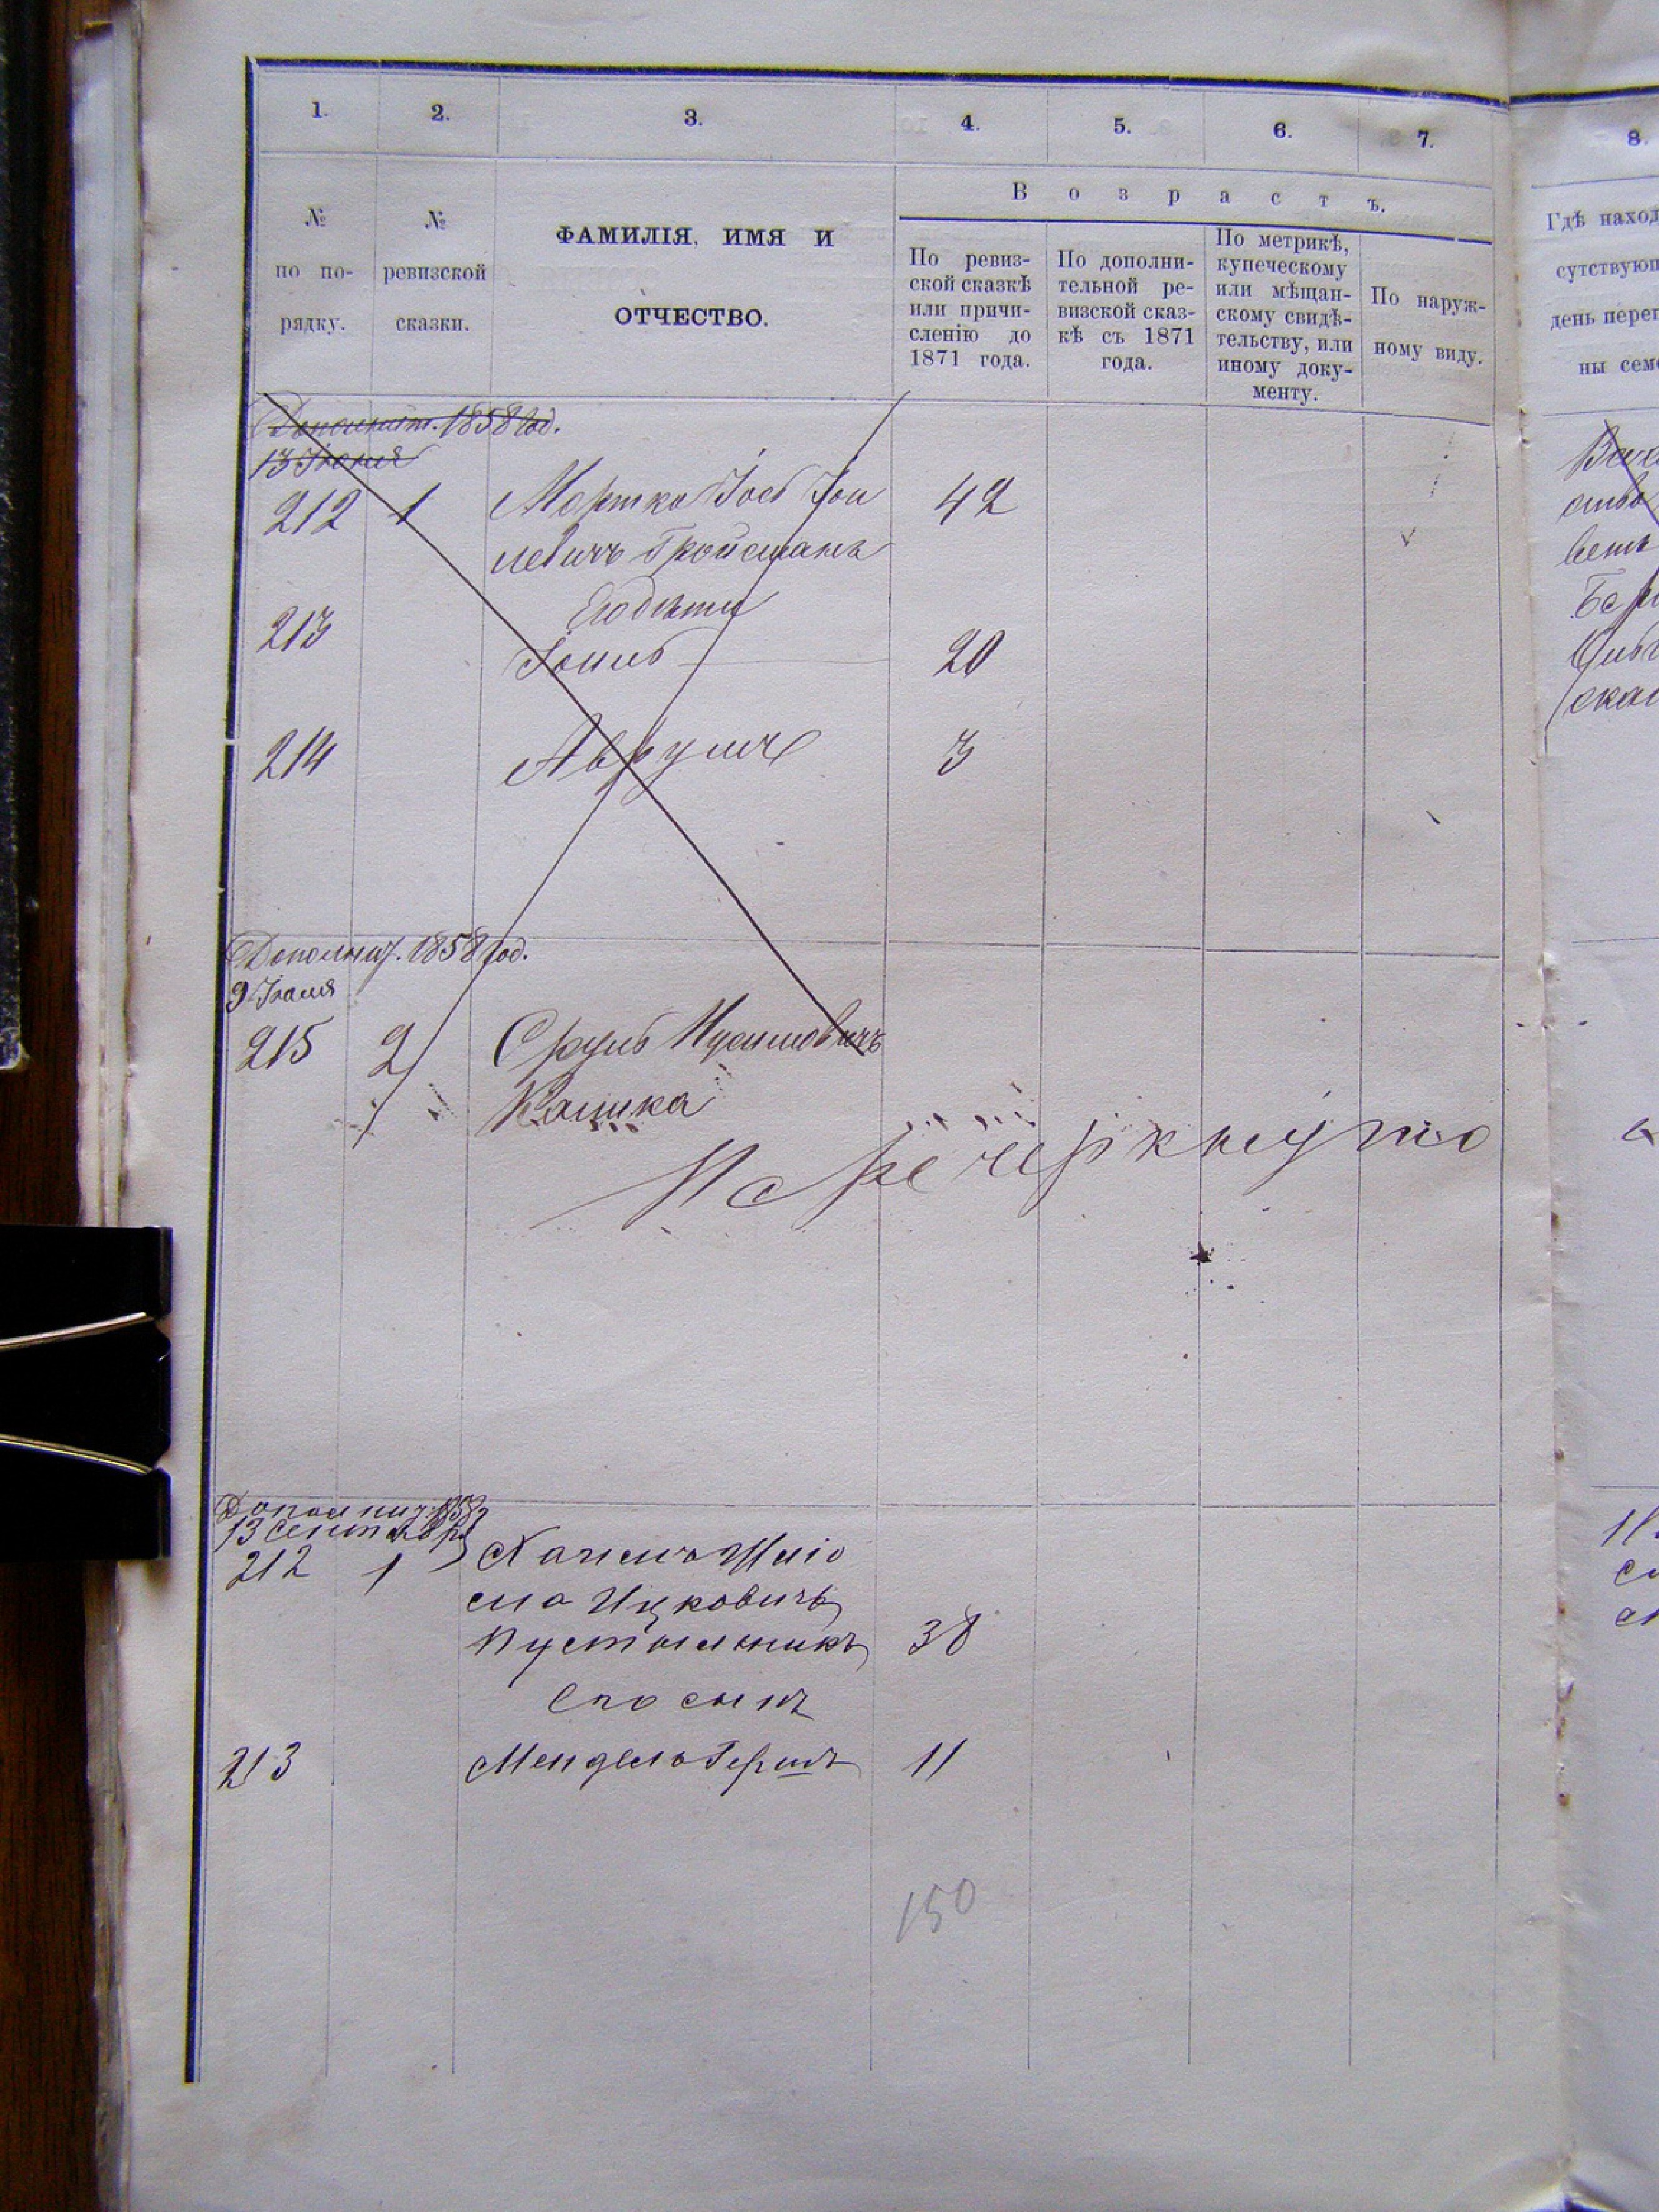 1.
2.
3.
4.
5.
6.
7.
8.
В о з р а с т ъ.
№
по по-
рядку.
№
ревизской
сказки.
ФАМИЛІЯ, ИМЯ И
ОТЧЕСТВО.
По ревиз-
ской сказкѣ
или причи-
сленію до
1871 года.
По дополни-
тельной ре-
визской сказ-
кѣ съ 1871
года.
По метрикѣ,
купеческому
или мѣщан-
скому свидѣ-
тельству, или
иному доку-
менту.
По наруж-
ному виду.
Гдѣ наход
сутствующ
день перег
ны сем
Дополнит. 1858 год.
13 Іюня
212 1 Мортко Іось Іои
левичъ Гройсманъ 42
Его дѣти
213 Іоиль 20
214 Аврумъ 3
Дополнит. 1858 год.
9 Іюля
215 2 Сруль
Перечеркнуто
Дополнит. 1858
13 Сентября
212 1
Ицковичъ
Пустыльникъ 38
Его сынъ
213 Мендель Гершъ 11
150